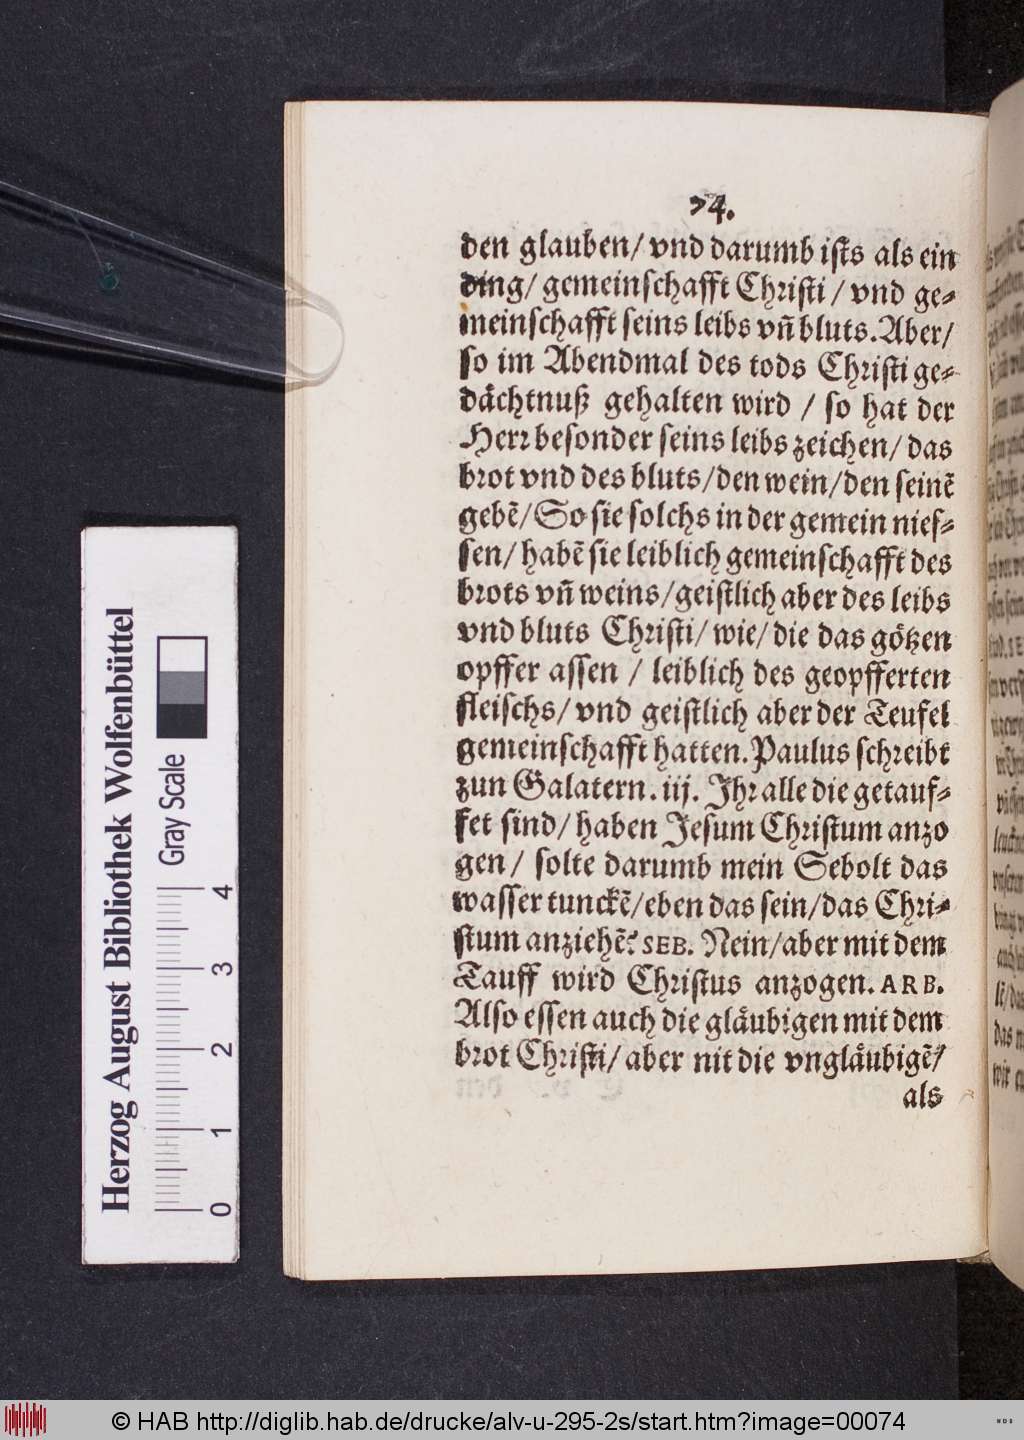 74.
den glauben/ vnd darumb iſts als ein
ding/ gemeinſchafft Chriſti / vnd ge⸗
meinſchafft ſeins leibs vñ bluts. Aber/
ſo im Abendmal des tods Chriſti ge⸗
dächtnuß gehalten wird / ſo hat der
Herr beſonder ſeins leibs zeichen/ das
brot vnd des bluts/ den wein/ den ſeinẽ
gebẽ/ So ſie ſolchs in der gemein nieſ⸗
ſen/ habẽ ſie leiblich gemeinſchafft des
brots vñ weins/ geiſtlich aber des leibs
vnd bluts Chriſti/ wie/ die das götzen
opffer aſſen / leiblich des geopfferten
fleiſchs/ vnd geiſtlich aber der Teufel
gemeinſchafft hatten. Paulus ſchreibt
zun Galatern. iij. Jhr alle die getauf⸗
fet ſind/ haben Jeſum Chriſtum anzo
gen/ ſolte darumb mein Sebolt das
waſſer tunckẽ/ eben das ſein/ das Chri⸗
ſtum anziehẽ? SEB. Nein/ aber mit dem
Tauff wird Chriſtus anzogen. ARB.
Alſo eſſen auch die gläubigen mit dem
brot Chriſti/ aber nit die vngläubigẽ/
als
Herzog August Bibliothek Wolfenbüttel
Gray Scale
0 1 2 3 4
© HAB http://diglib.hab.de/drucke/alv-u-295-2s/start.htm?image=00074